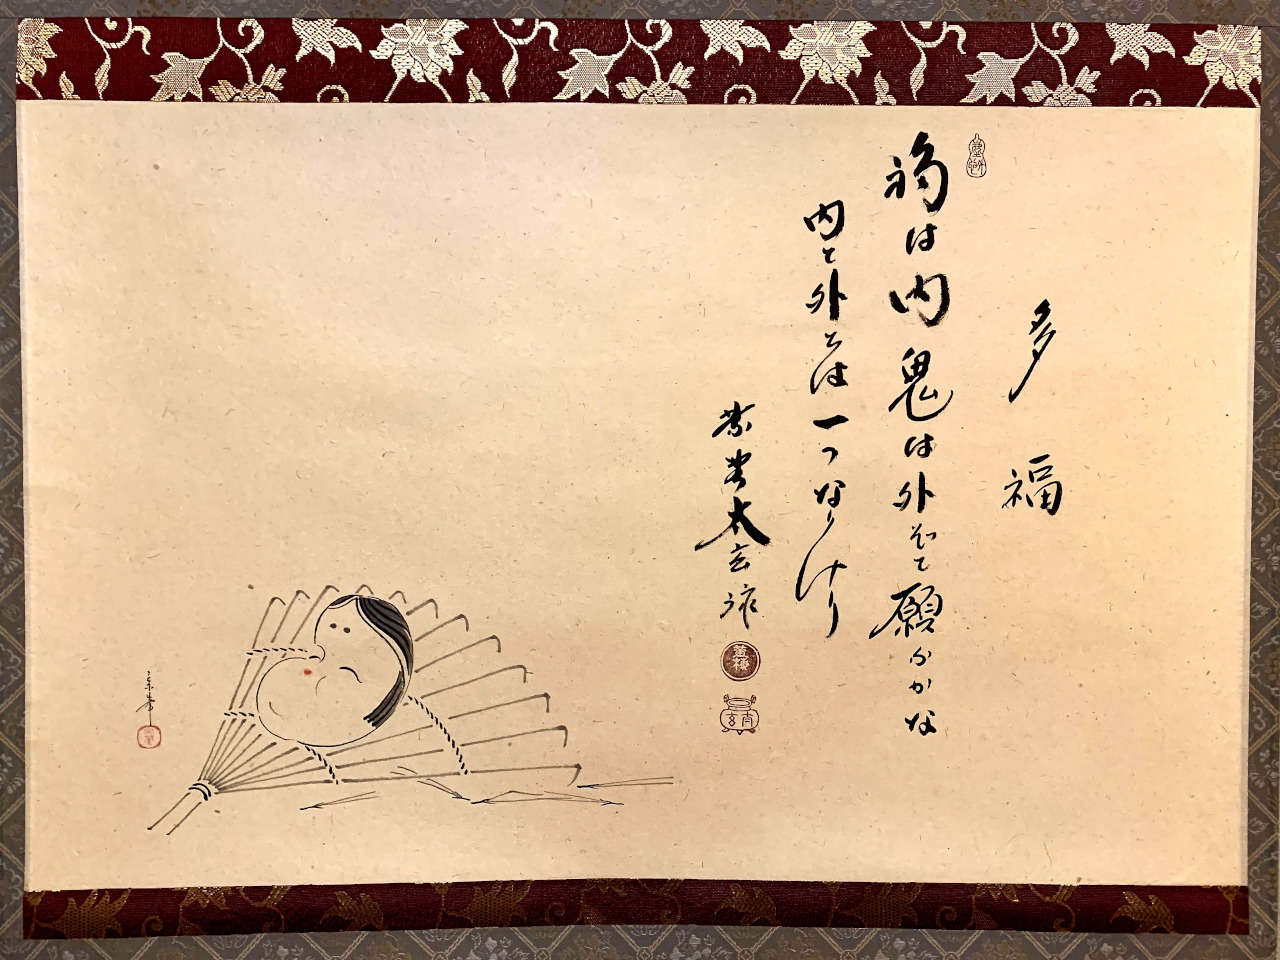 多福
福は内鬼は外とて願ふかな
内と外とは一つなりけり
紫野太玄